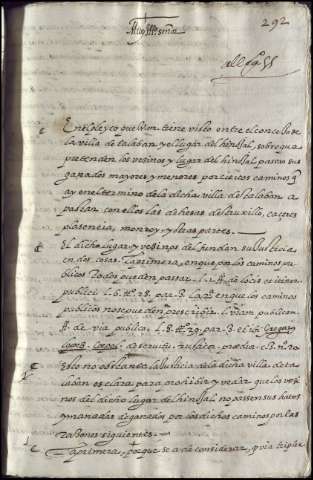 292
Muy Ill.e señor
all fa 55
En el pleyto que v.m. tiene visto entre el concejo de
la villa de talaban y el lugar del hinojal, sobre que
pretenden los vecinos y lugar del hinojal passar sus
ganados mayores y menores por ciertos caminos q
ay en el termino de la dicha villa de talaban a
pastar con ellos las dehesas de truxillo, caceres
plasencia, monroy, y otras partes.
El dicho lugar y vecinos de hundan su Justicia
en dos cosas. La primera, en que por los caminos pu
blicos Todos pueden passar. l. 1. ff. de locis et itiner.
publici. l. 6. tt.º 28. par. 3. La 2.ª en que los caminos
publicos no se pueden prescribir. l. viam publicam
ff. de via publica. l. 7. tt.º 29. par. 3.
de servitu. rustico. predio. c. 3. n.º 20
Esto no obstante la Justicia de la dicha villa de ta
laban es clara para prohibir y vedar que los veci
nos del dicho lugar de hinojal no passen sus hatos
y manadas de ganados por los dichos caminos por las
Razones siguientes.
La primera, porque se a de considerar, q via triplex